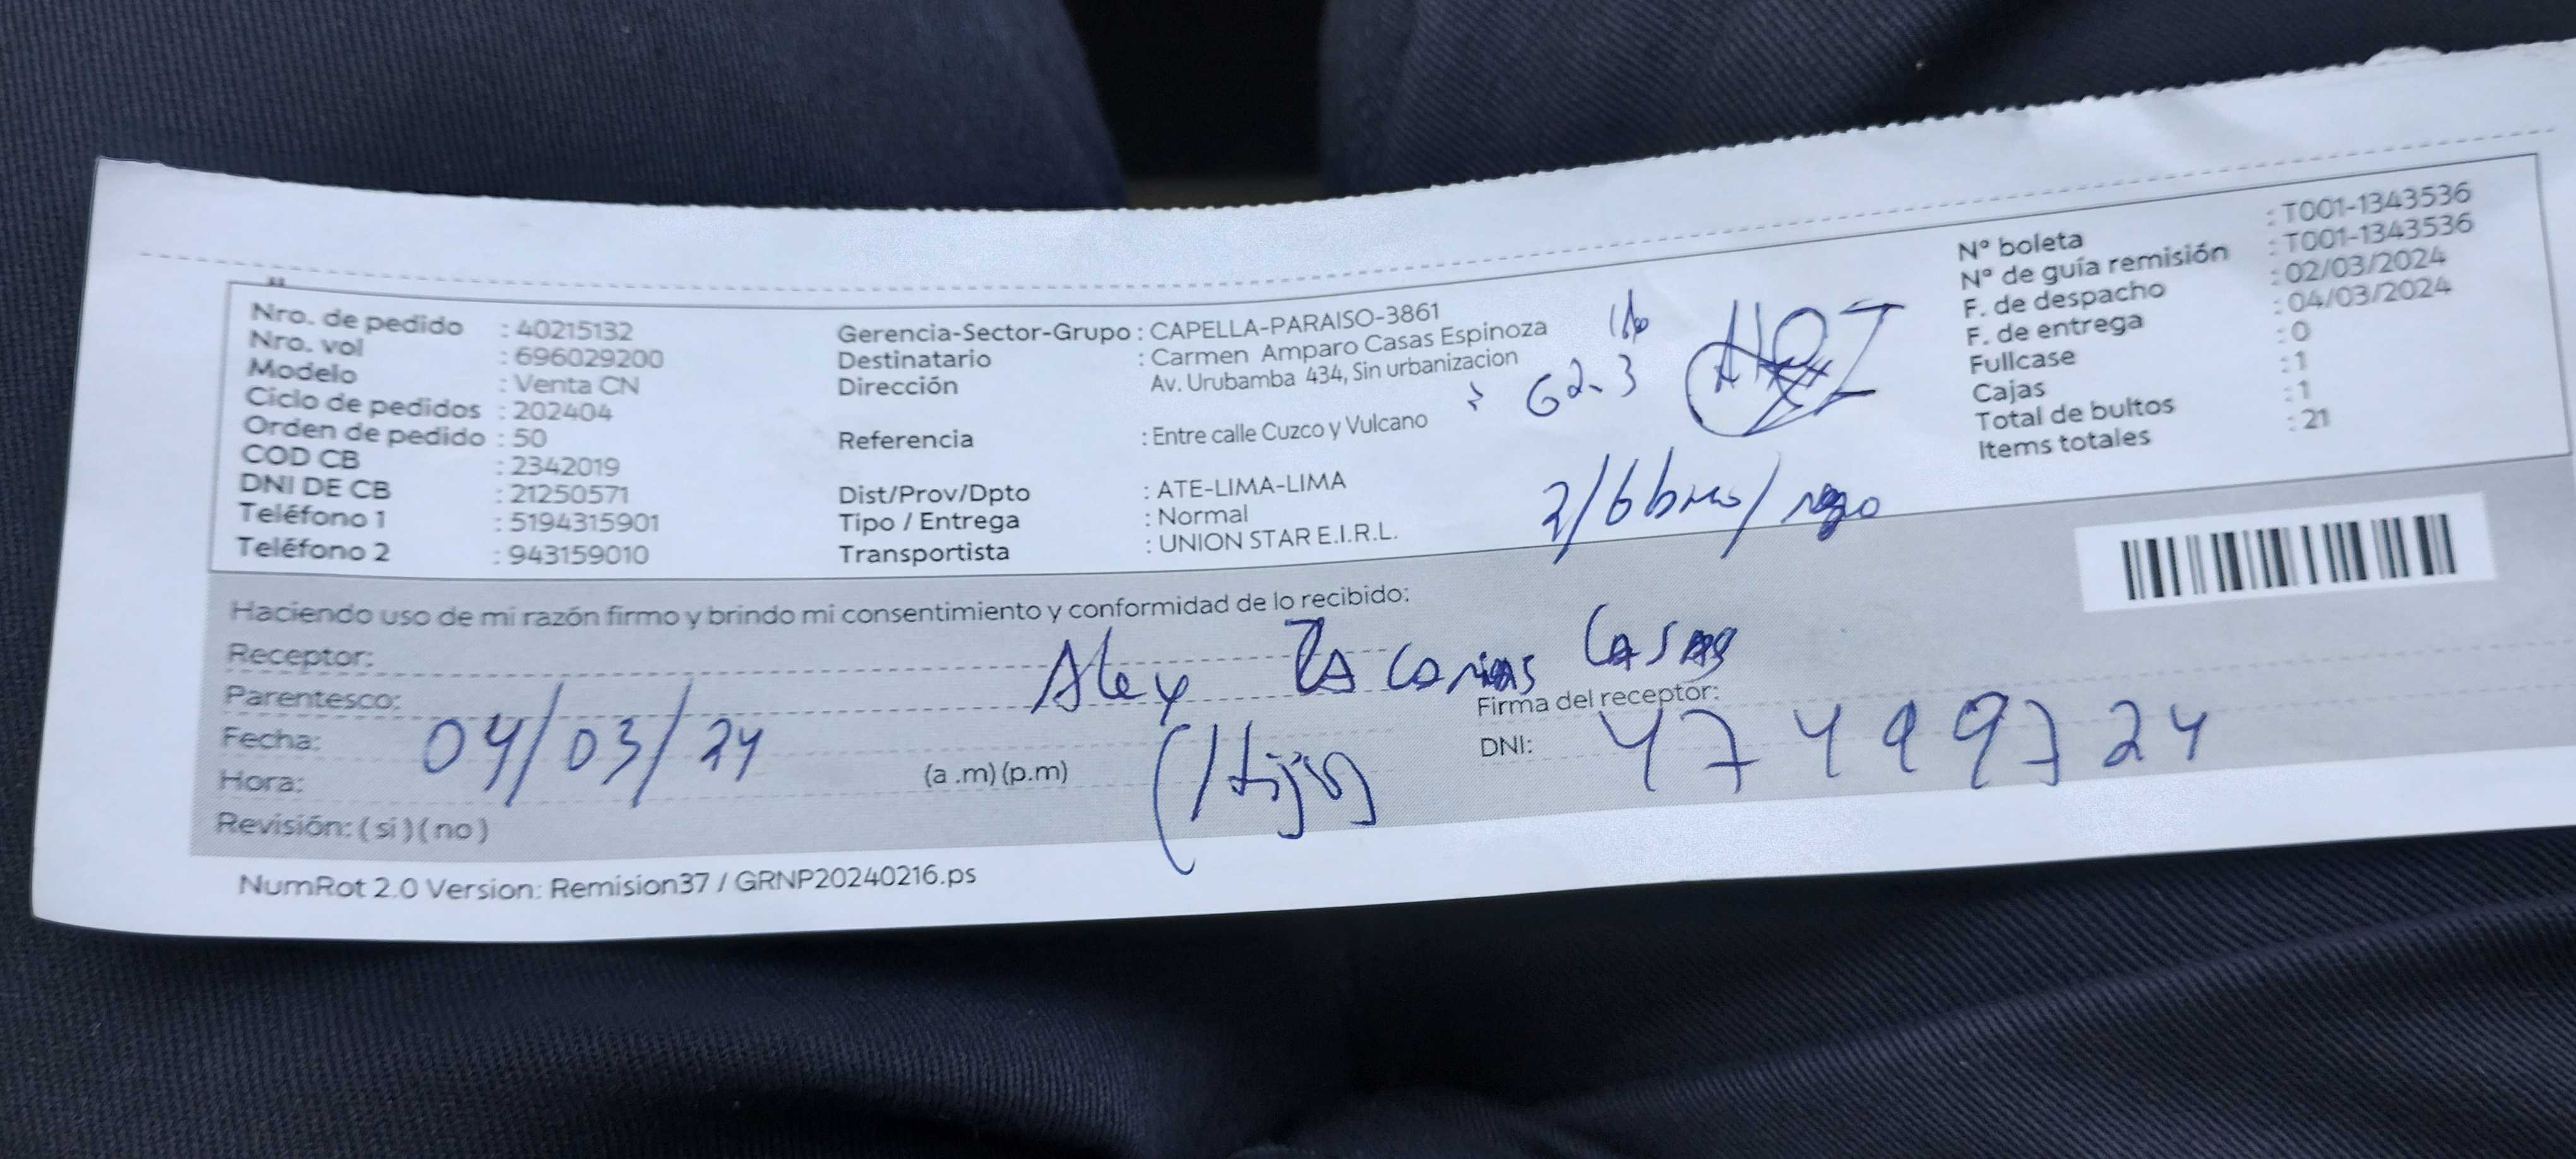 Nro. de pedido : 40215132
Nro. vol : 696029200
Modelo : Venta CN
Ciclo de pedidos : 202404
Orden de pedido : 50
COD CB : 2342019
DNI DE CB : 21250571
Teléfono 1 : 5194315901
Teléfono 2 : 943159010
Gerencia-Sector-Grupo : CAPELLA-PARAISO-3861
Destinatario : Carmen Amparo Casas Espinoza
Dirección Av. Urubamba 434, Sin urbanizacion
Referencia : Entre calle Cuzco y Vulcano
Dist/Prov/Dpto : ATE-LIMA-LIMA
Tipo / Entrega : Normal
Transportista : UNION STAR E.I.R.L.
G2-3
Nº boleta : T001-1343536
Nº de guía remisión : T001-1343536
F. de despacho : 02/03/2024
F. de entrega : 04/03/2024
Fullcase : 0
Cajas : 1
Total de bultos : 1
Items totales : 21
Haciendo uso de mi razón firmo y brindo mi consentimiento y conformidad de lo recibido:
Receptor: Alex Casas
Parentesco: (Hijo)
Firma del receptor:
Fecha: 04/03/24
DNI: 47499724
Hora: (a .m) (p.m)
Revisión: ( si ) ( no )
NumRot 2.0 Version: Remision37 / GRNP20240216.ps